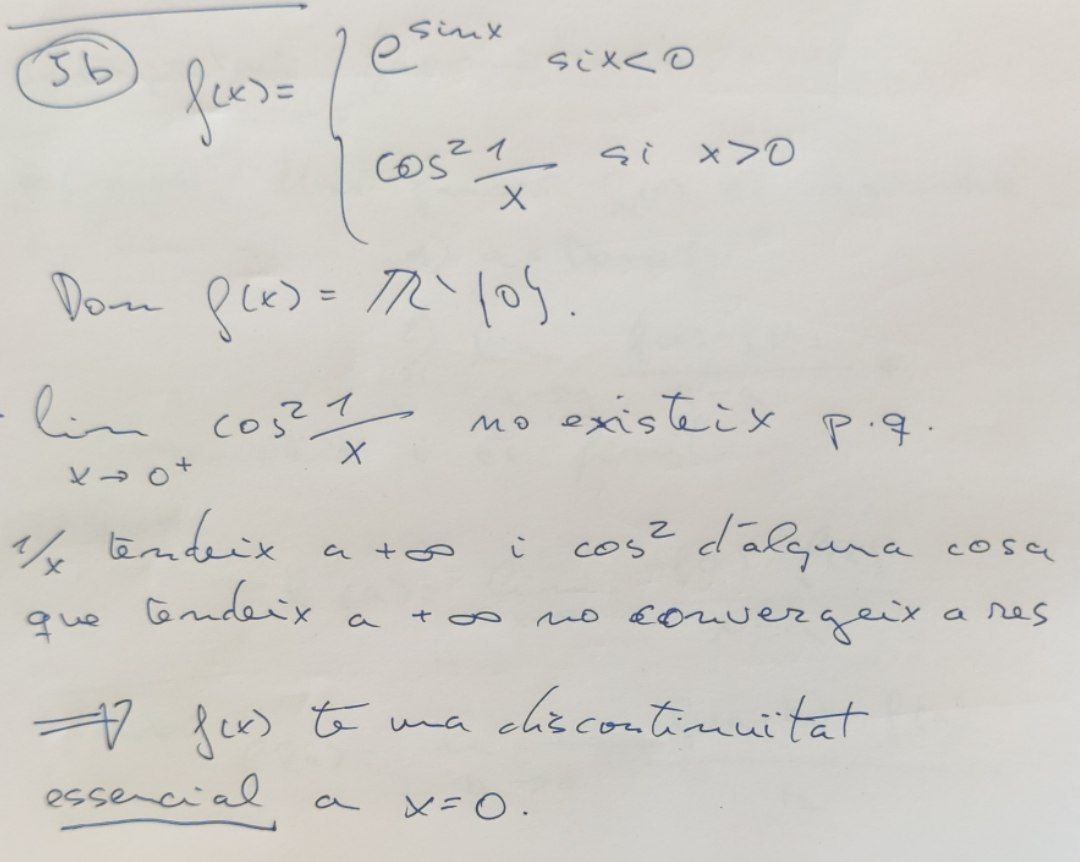 5b f(x) = { e^sinx si x<0
cos² 1/x si x>0
Dom f(x) = ℝ \ {0}.
lim x→0⁺ cos² 1/x no existeix p.q.
1/x tendeix a +∞ i cos² d'alguna cosa
que tendeix a +∞ no convergeix a res
⟹ f(x) té una discontinuïtat
essencial a x=0.